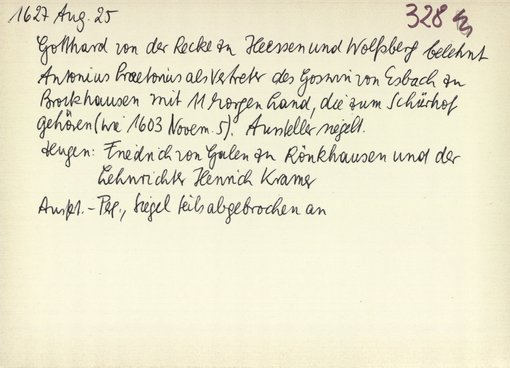 1627 Aug. 25
328
Gotthard von der Recke zu Heessen und Wolfsberg belehnt
Antonius Praetorius als Vertreter des Goswin von Esbach zu
Brockhausen mit 11 Morgen Land, die zum Schürhof
gehören (wie 1603 Novem. 5). Aussteller siegelt.
Zeugen: Friedrich von Galen zu Rönkhausen und der
Lehnrichter Henrich Kramer
Ausf. - Perg., Siegel teils abgebrochen an